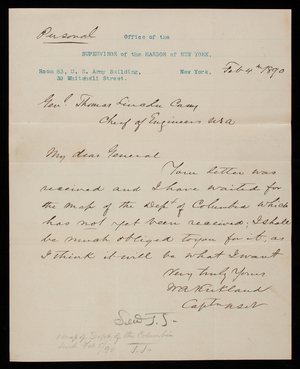 Personal
Office of the
SUPERVISOR of the HARBOR of NEW YORK,
Room 53, U. S. Army Building,
39 Whitehall Street.
New York, Feb 4th 1890
Genl Thomas Lincoln Casey
Chief of Engineers USA
My dear General
Your letter was
received and I have waited for
the map of the Dept of Columbia which
has not yet been received; I shall
be much obliged to you for it, as
I think it will be what I want
Very truly Yours
W A Kirkland
Capt USN
Send J.T.
1 map of Dept of the Columbia
Feb 5/90 J.T.